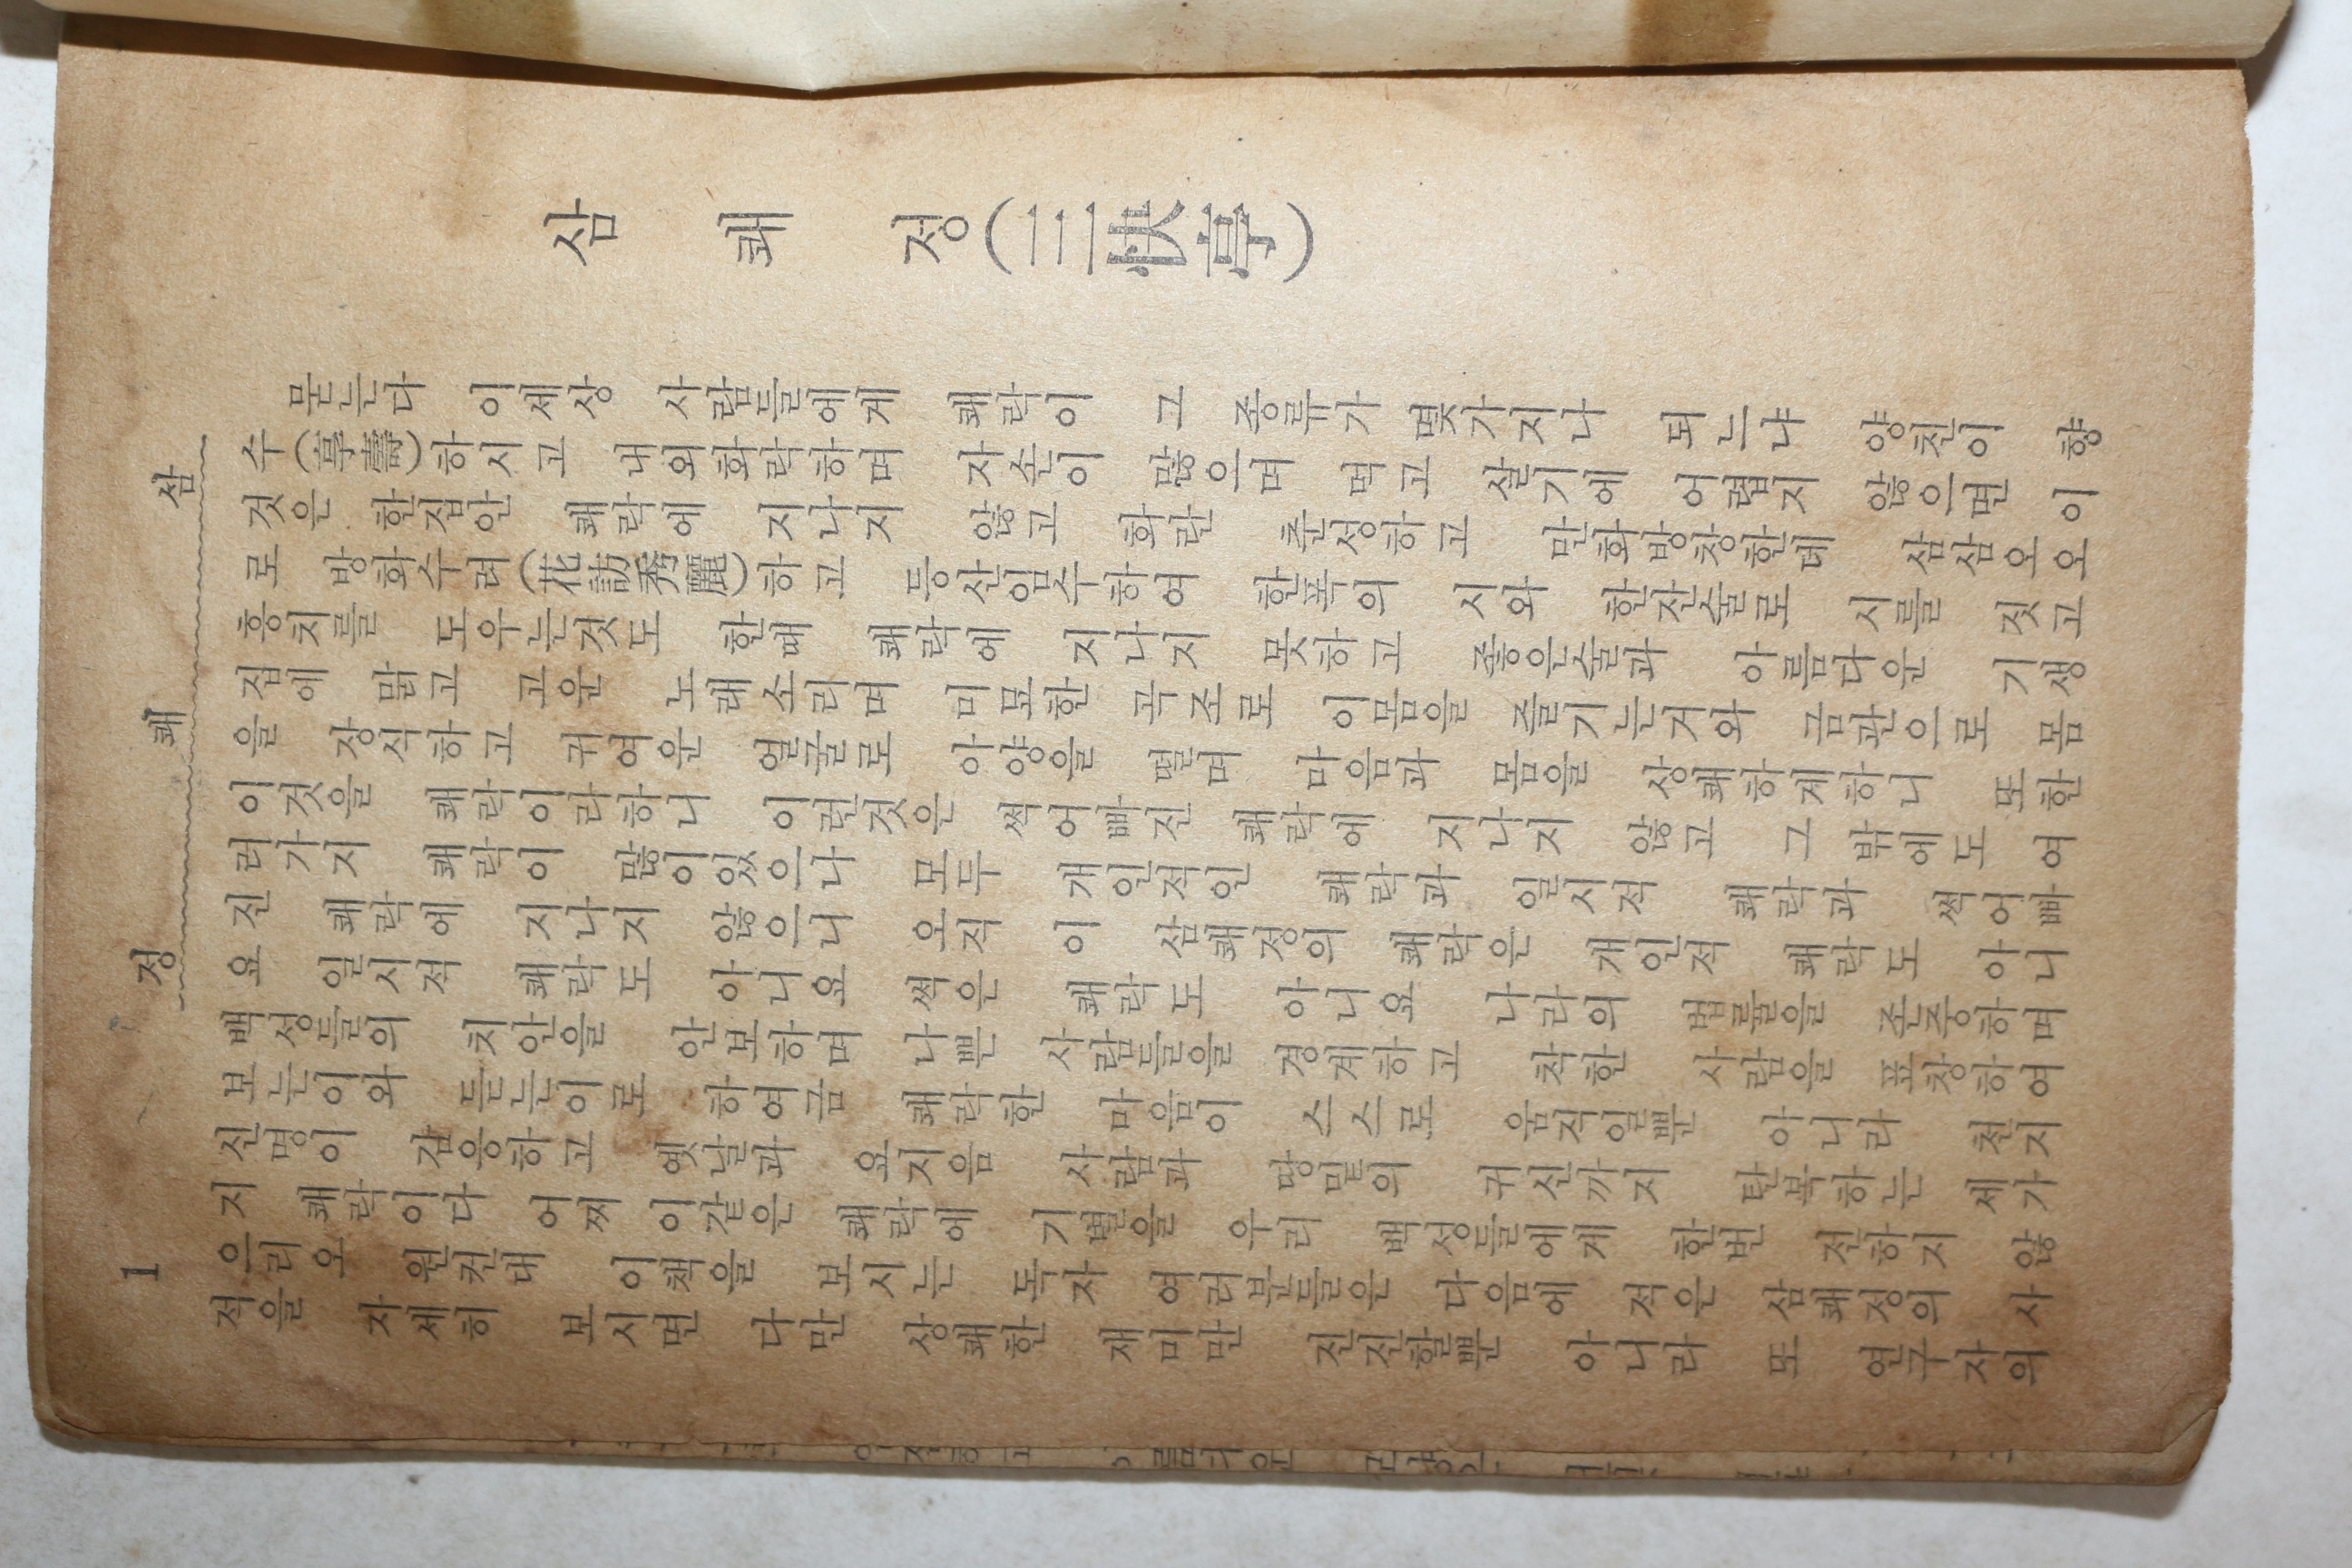 삼 쾌 정(三快亭)
묻는다 이세상 사람들에게 쾌락이 그 종류가 몇가지나 되느냐 양친이 향
수(享壽)하시고 내외화락하며 자손이 많으며 먹고 살기에 어렵지 않으면 이
것은 한집안 쾌락에 지나지 않고 화란 춘성하고 만화방창한데 삼삼오오
로 방화수려(花訪秀麗)하고 등산임수하여 한폭의 시와 한잔술로 시를 짓고
흥치를 도우는것도 한때 쾌락에 지나지 못하고 좋은술과 아름다운 기생
집에 맑고 고운 노래소리며 미묘한 곡조로 이몸을 즐기는거와 금관으로 몸
을 장식하고 귀여운 얼굴로 아양을 떨며 마음과 몸을 상쾌하게하니 또한
이것을 쾌락이라하니 이런것은 썩어빠진 쾌락에 지나지 않고 그 밖에도 여
러가지 쾌락이 많이있으나 모두 개인적인 쾌락과 일시적 쾌락과 썩어빠
진 쾌락에 지나지 않으니 오직 이 삼쾌정의 쾌락은 개인적 쾌락도 아니
요 일시적 쾌락도 아니요 썩은 쾌락도 아니요 나라의 법률을 존중하며
백성들의 치안을 안보하며 나쁜 사람들을 경계하고 착한 사람을 표창하여
보는이와 듣는이로 하여금 쾌락한 마음이 스스로 움직일뿐 아니라 천지
신명이 감응하고 옛날과 요지음 사람과 땅밑의 귀신까지 탄복하는 세가
지 쾌락이다 어찌 이같은 쾌락에 기별을 우리 백성들에게 한번 전하지 않
으리오 원컨대 이책을 보시는 독자 여러분들은 다음에 적은 삼쾌정의 사
적을 자세히 보시면 다만 상쾌한 재미만 진진할뿐 아니라 또 연구자의
삼 쾌 정
1